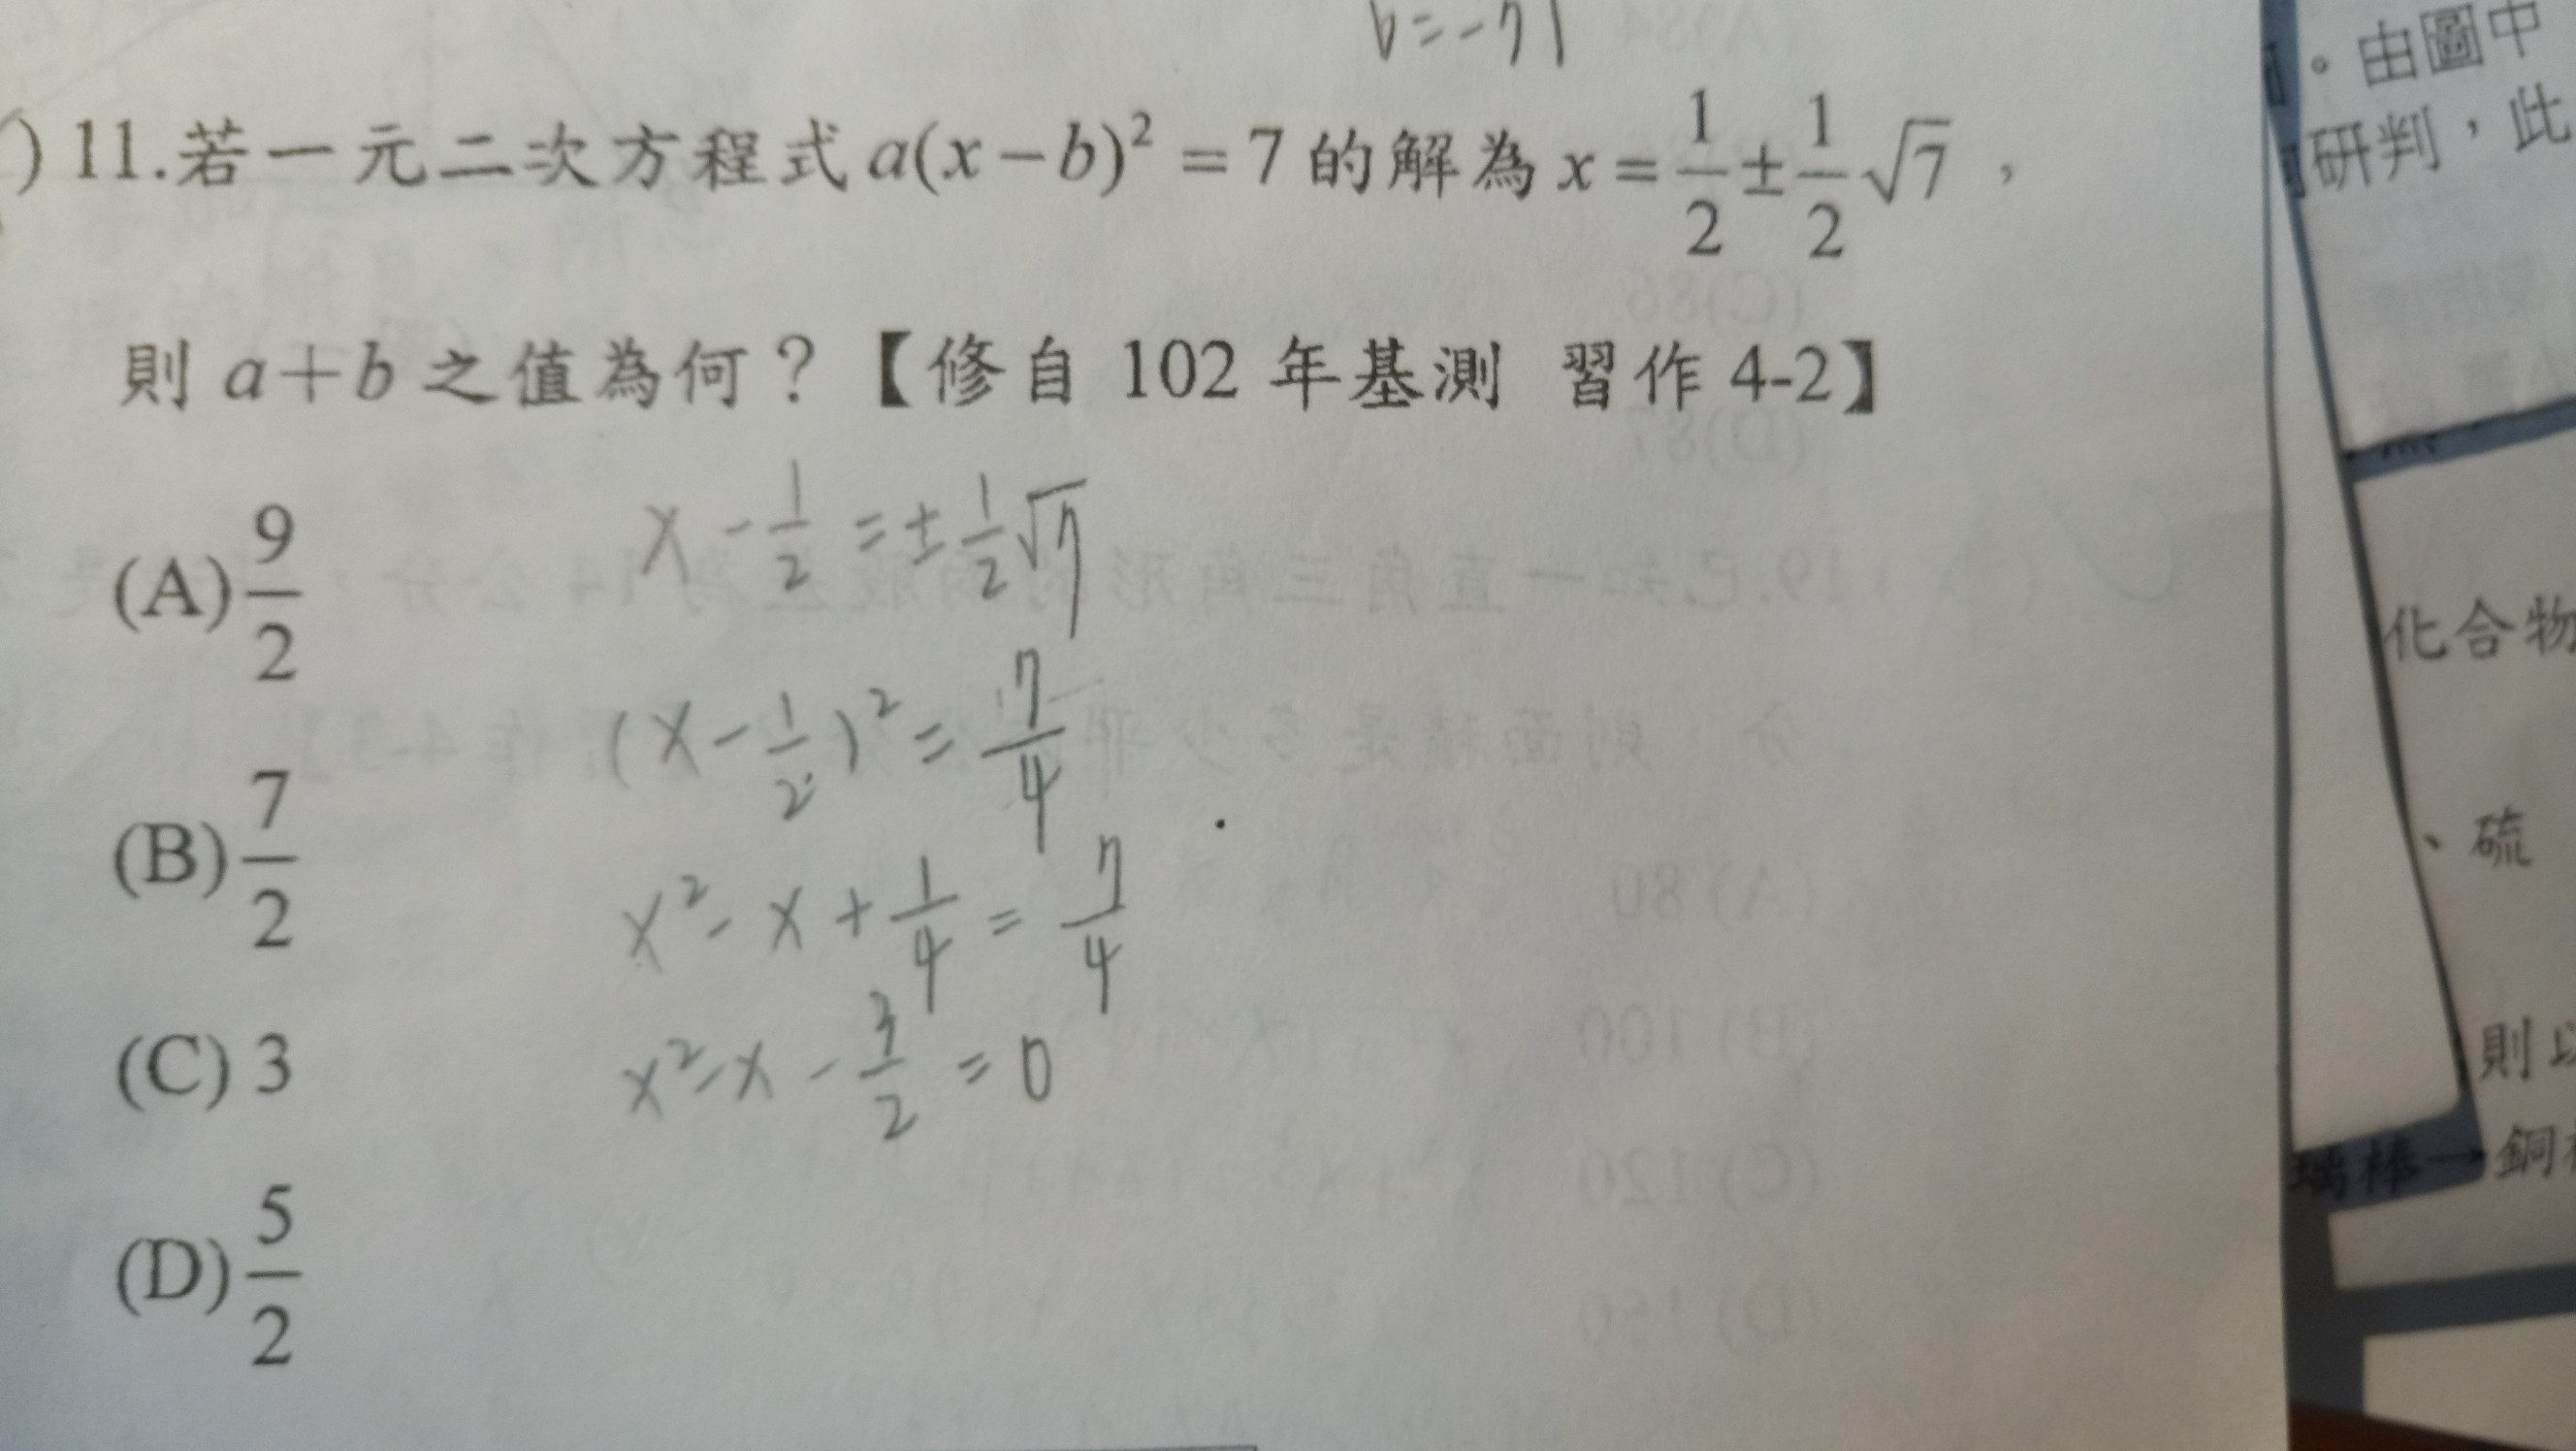 b=-71
) 11.若一元二次方程式 a(x−b)² = 7 的解為 x = 1/2 ± 1/2 √7，
則 a＋b 之值為何？【修自 102 年基測 習作 4-2】
(A) 9/2
(B) 7/2
(C) 3
(D) 5/2
x - 1/2 = ± 1/2 √7
(x - 1/2)² = 7/4
x² - x + 1/4 = 7/4
x² - x - 3/2 = 0
。由圖中
研判，此
化合物
、硫
則以
璃棒→銅